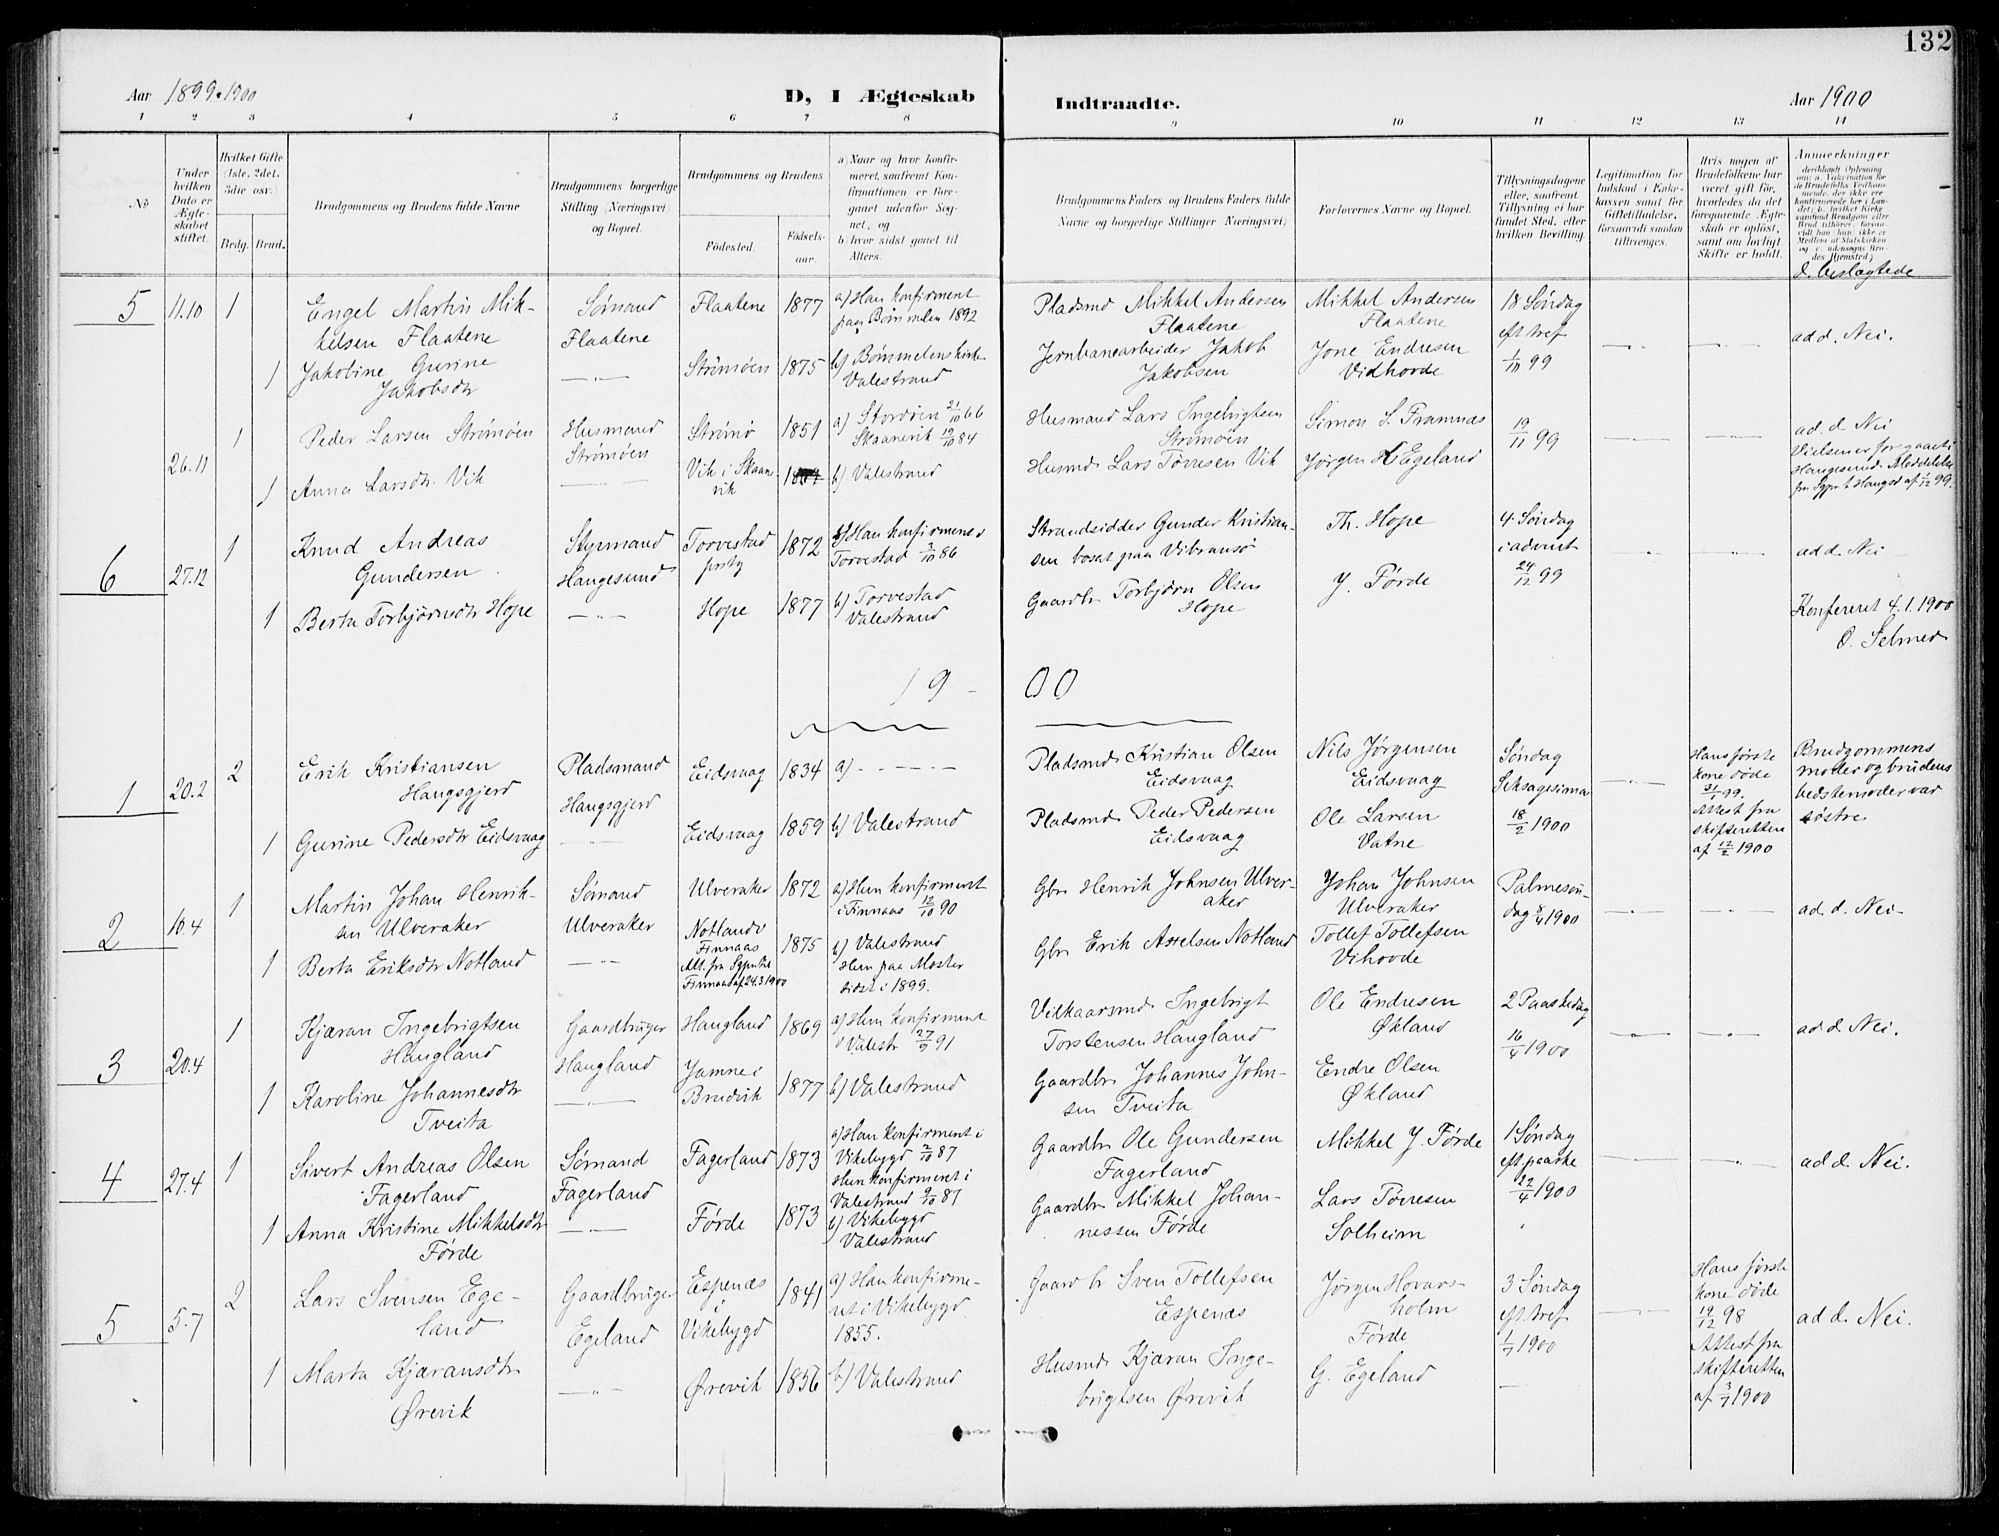 132
Aar 1899-1900
D, I Ægteskab
Indtraadte.
Aar 1900
1 2 3 4 5 6 7 8 9 10 11 12 13 14
No
Under hvilken Dato er Ægteskabet stiftet.
Hvilket Gifte (1ste, 2det, 3die osv.)
Brdg. Brud.
Brudgommens og Brudens fulde Navne
Brudgommens borgerlige Stilling (Næringsvei) og Bopæl.
Brudgommens og Brudens
Fødested.
Fødselsaar.
a) Naar og hvor konfirmeret, saafremt Konfirmationen er foregaaet udenfor Sognet, og
b) hvor sidst gaaet til Alters.
Brudgommens Faders og Brudens Faders fulde Navne og borgerlige Stillinger (Næringsvei)
Forlovernes Navne og Bopæl.
Tillysningsdagene eller, saafremt Tillysning ei har fundet Sted, efter hvilken Bevilling.
Legitimation for Indskud i Enkekassen samt for Giftetilladelse, forsaavidt saadan tiltrænges.
Hvis nogen af Brudefolkene har været gift før, hvorledes da det foregaaende Ægteskab er opløst, samt om lovligt Skifte er holdt.
Anmerkninger
d. beslægtede
5
11.10
1
Engel Martin Mikkelsen Flaatene
Sømand
Flaatene
Flaatene
1877
a) Han konfirment
paa Bømmelen 1892
Pladsmd Mikkel Andersen
Flaatene
Mikkel Andersen
Flaatene
18 Søndag
eft. tref
1/10 99
ad d. Nei.
1
Jakobine Gurine
Jakobsdtr
Strømøen
1875
b) Bømmelens kirke
Valestrand
Jernbanearbeider Jakob
Jakobsen
Jone Endresen
Vidhovde
26.11
1
Peder Larsen Strømøen
Husmand
Strømøen
Strømø
1851
a) Stordøen 21/10 66
Skaanevik 19/10 84
Husmand Lars Ingebrigtsen
Strømøen
Simon S. Framnæs
19/11 99
ad d. Nei
Vielsen er foregaaet i
Haugesund. Meddelelse
fra Sgpr. t. Haugesd af 1/12 99.
1
Anna Larsdtr. Vik
Vik i Skaanevik
b) Valestrand
Husmd. Lars Tørresen Vik
Jørgen H Egeland
6
27.12
1
Knud Andreas
Gundersen
Styrmand
Haugesund
Torvestad
prstg
1872
a) Han konfirmeret
Torvestad 3/10 86
Strandsidder Gunder Kristiansen bosat paa Vibransø
Th. Hope
4. Søndag
i advent
24/12 99
ad d. Nei
1
Berta Torbjørnsdtr Hope
Hope
1877
b) Torvestad
Valestrand
Gaardbr Torbjørn Olsen
Hope
J. Førde
Konfereret 4.1.1900
O. Selmer
19 - 00
1
20.2
2
Erik Kristiansen
Haugsgjerd
Pladsmand
Haugsgjerd
Eidsvaag
1834
a) - - - - -
Pladsmd. Kristian Olsen
Eidsvaag
Nils Jørgensen
Eidsvaag
Søndag
Seksagesima
18/2 1900
Hans første
kone døde
21/1 99.
Attest fra
skifteretten
af 12/2 1900
Brudgommens
moder og brudens
bedstemoder var
søstre
1
Gurine Pedersdtr Eidsvaag
Eidsvaag
1859
b) Valestrand
Pladsmd. Peder Pedersen
Eidsvaag
Ole Larsen
Vatne
2
10.4
1
Martin Johan Henriksen Ulveraker
Sømand
Ulveraker
Ulveraker
1872
a) Hun konfirment
i Finnaas 12/10 90
Gbr Henrik Johnsen Ulveraker
Johan Johnsen
Ulveraker
Palmesøndag 8/4 1900
ad d. Nei.
1
Berta Eriksdtr Notland
Notland
Finnaas
Att. fra Sgpr til
Finnaas af 24.3.1900
1875
b) Valestrand
Hun paa Moster
sidst i 1899.
Gbr Erik Askelsen Notland
Tollef Tollefsen
Vihovde
3
20.4
1
Kjæran Ingebrigtsen
Haugland
Gaardbruger
Haugland
Haugland
1869
a) Hun konfirment
i Valestr 27/9 91
Vilkaarsmd. Ingebrigt
Torstensen Haugland
Ole Endresen
Økland
2 Paaskedag
16/4 1900
ad d. Nei.
1
Karoline Johannesdtr
Tveita
Jamne i
Bruvik
1877
b) Valestrand
Gaardbr Johannes Johnsen Tveita
Endre Olsen
Økland
4
27.4
1
Sivert Andreas Olsen
Fagerland
Sømand
Fagerland
Fagerland
1873
a) Han konfirment i
Vikebygd 2/10 87
Hun konfirmeret i
Valestrand 9/10 87
Gaardbr Ole Gundersen
Fagerland
Mikkel J. Førde
1 Søndag
eft. paaske
22/4 1900
ad d. Nei.
1
Anna Kristine Mikkelsdtr
Førde
Førde
1873
b) Vikebygd
Valestrand
Gaardbr Mikkel Johannessen Førde
Lars Tørresen
Solheim
5
5.7
2
Lars Svensen Egeland
Gaardbruger
Egeland
Espenæs
i
Vikebygd
1841
a) Han konfirmeret i Vikebygd
1855.
Gaardbr Sven Tollefsen
Espenæs
Jørgen Hovarsholm
Førde
3 Søndag
eft. tref
1/7 1900
Hans første
kone døde
19/12 98
Attest fra
skifteretten
af 3/7 1900
ad d. Nei.
1
Marta Kjæransdtr
Ørevik
Ørevik
1856
b) Valestrand
Husmd Kjæran Ingebrigtsen Ørevik
G. Egeland